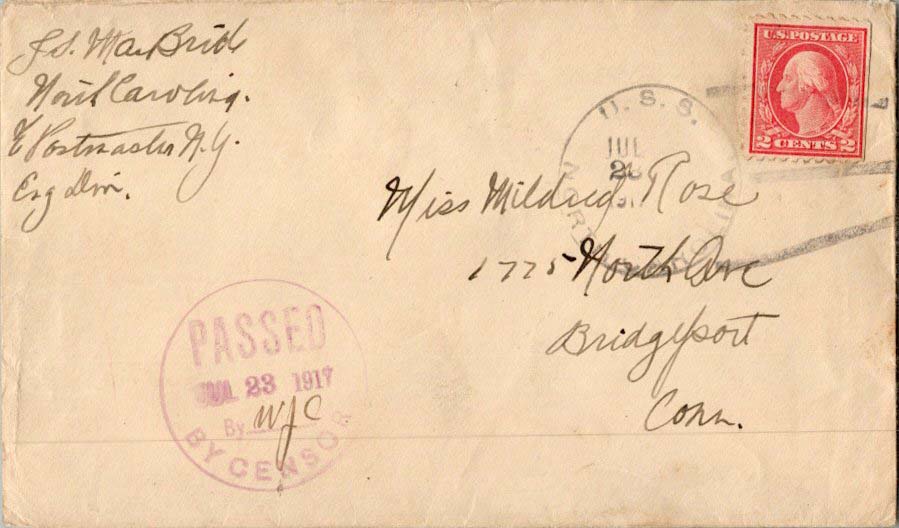 J.S. MacBride
North Carolina.
℅ Postmaster N.Y.
Eng Div.
U.S. POSTAGE
2 CENTS 2
U. S. S.
NORTH CAROLINA
JUL
Miss Mildred Rose
1775 North Ave
Bridgeport
Conn.
PASSED
JUL 23 1917
By WJC
BY CENSOR